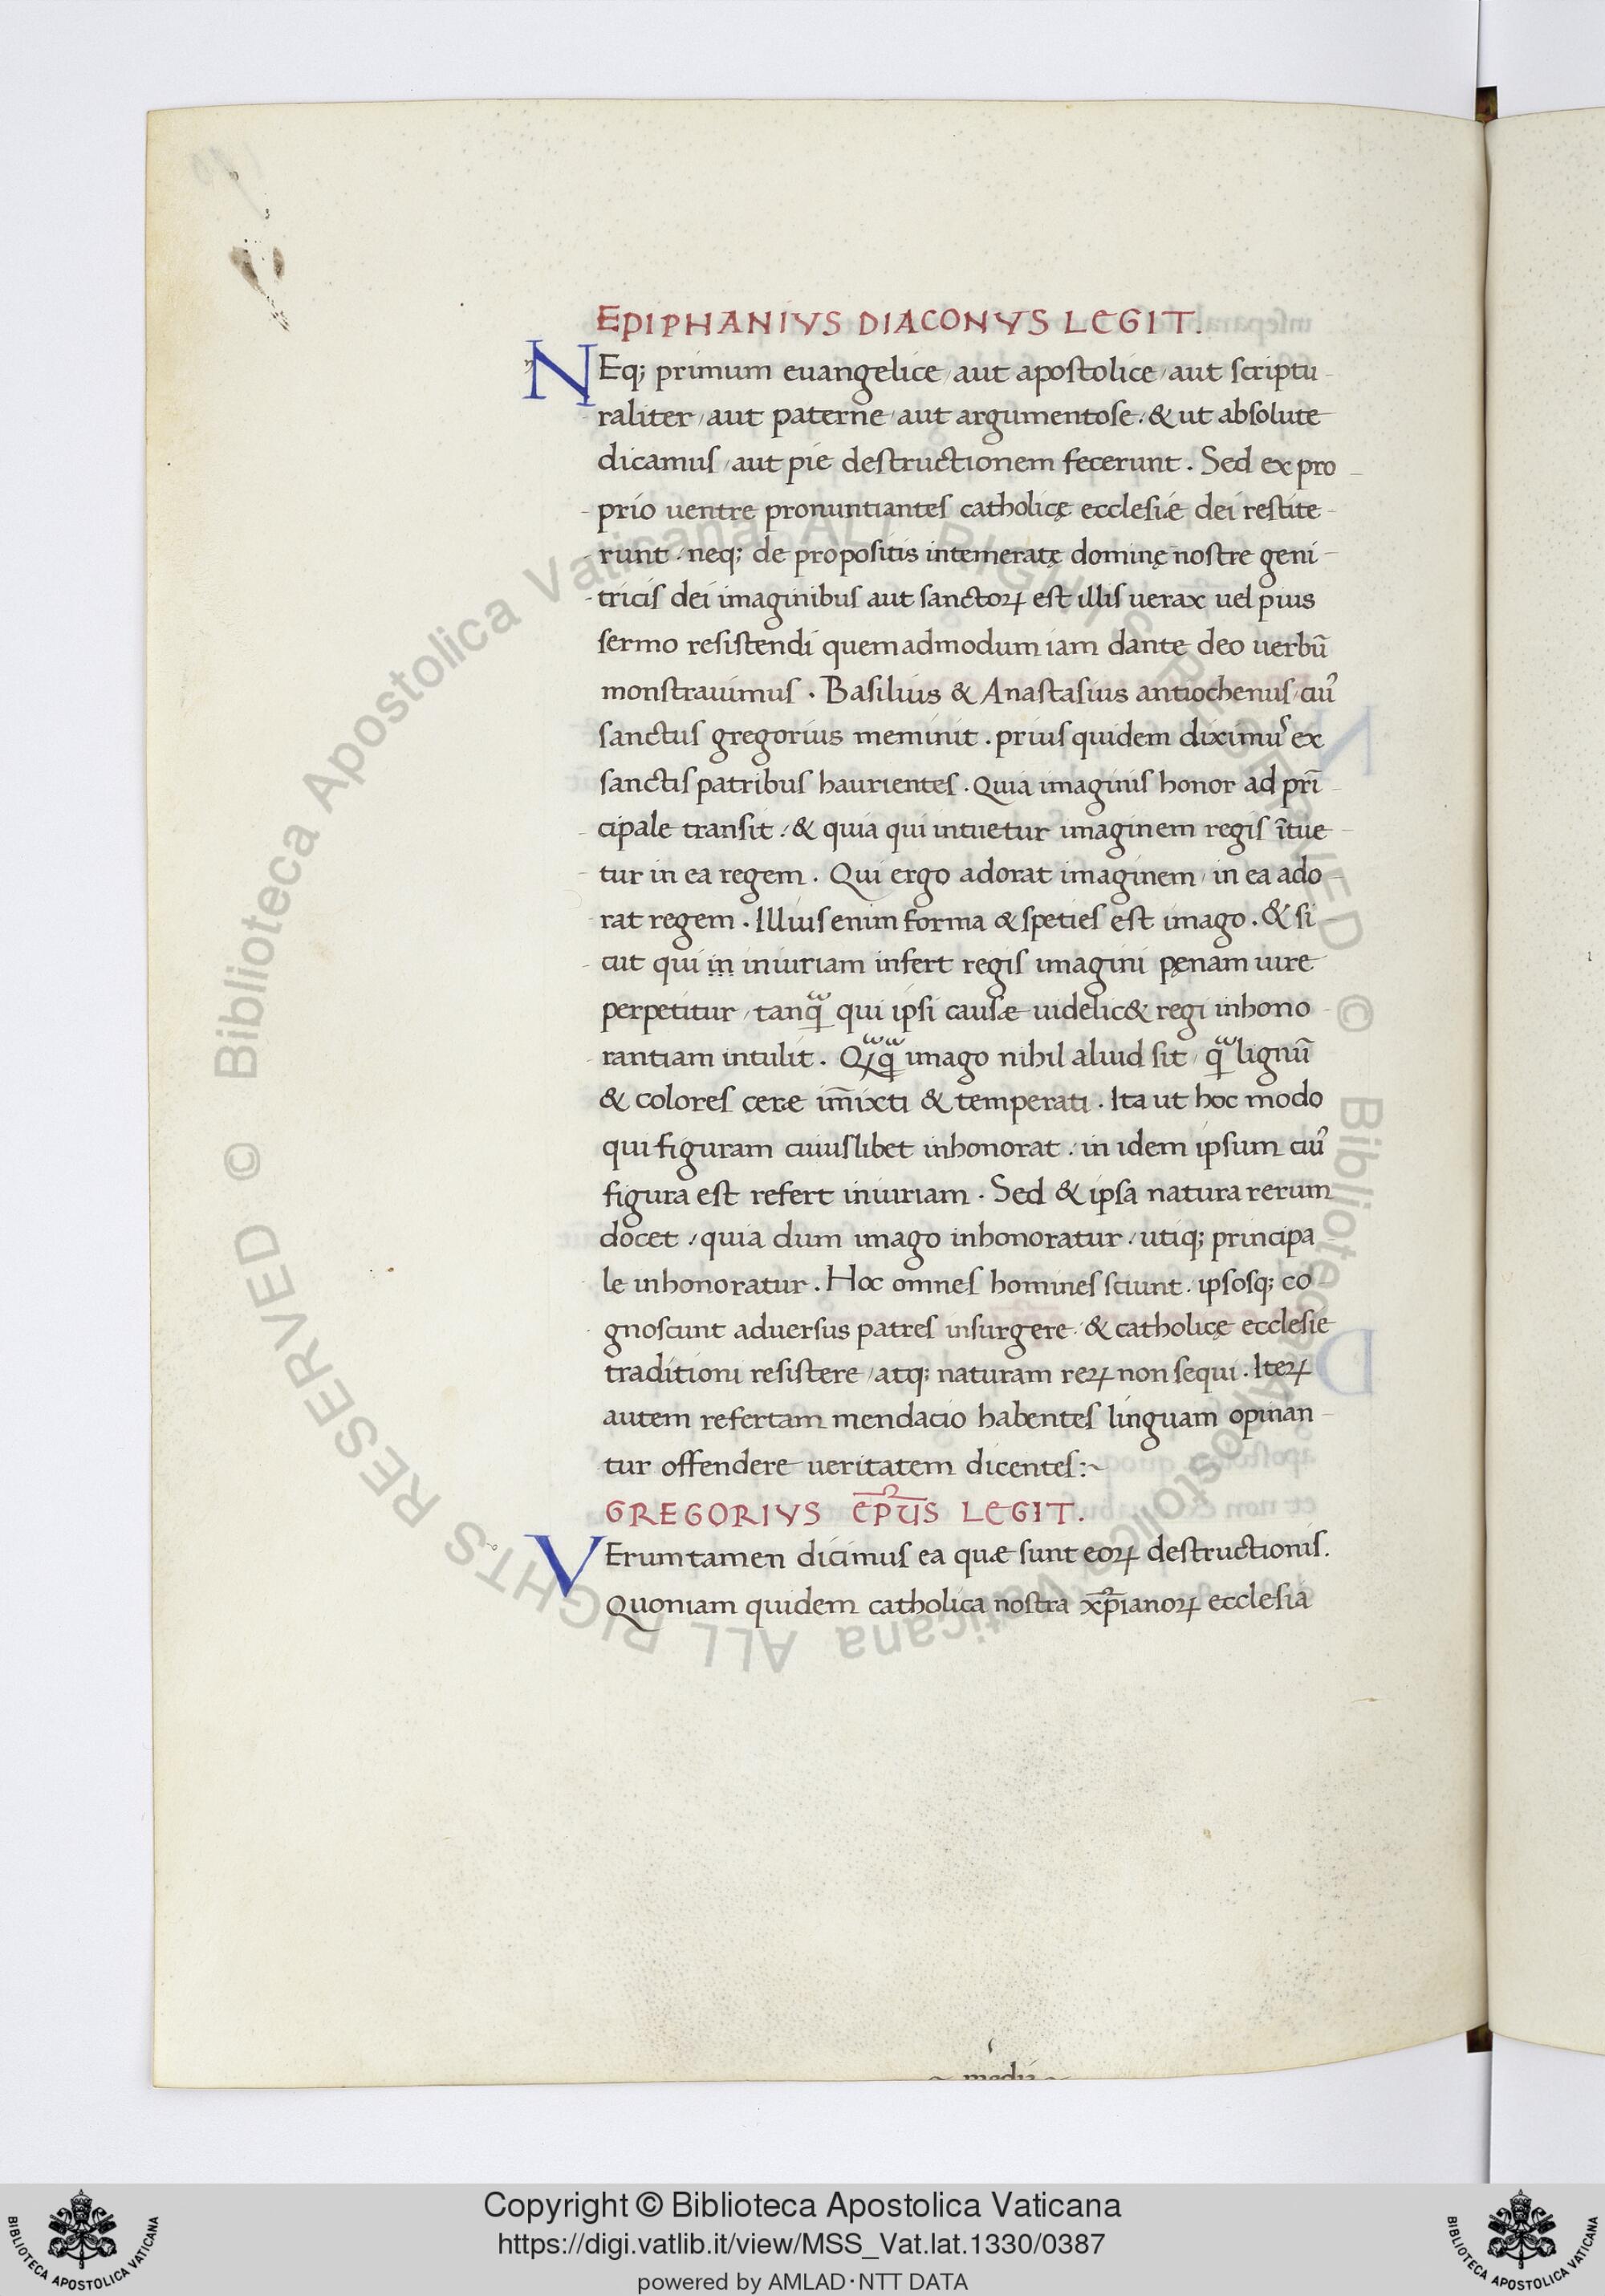 EPIPHANIVS DIACONVS LEGIT.
NEq; primum euangelice, aut apostolice, aut scriptu-
raliter, aut paterne, aut argumentose. & ut absolute
dicamus, aut pie destructionem fecerunt. Sed ex pro-
prio uentre pronuntiantes catholicę ecclesiæ dei restite-
runt. neq; de propositis intemeratę dominę nostre geni-
tricis dei imaginibus aut sanctoꝝ est illis uerax uel pius
sermo resistendi quemadmodum iam dante deo uerbū
monstrauimus. Basilius & Anastasius antiochenus, cuiꝰ
sanctus gregorius meminit. prius quidem diximuˢ ex
sanctis patribus haurientes. Quia imaginis honor ad prī-
cipale transit. & quia qui intuetur imaginem regis ītue-
tur in ea regem. Qui ergo adorat imaginem, in ea ado-
rat regem. Illius enim forma & speties est imago. & si-
cut qui in iniuriam infert regis imagini pęnam iure
perpetitur, tanꝗᷓ qui ipsi causæ uidelic& regi inhono-
rantiam intulit. Qᷓꝗᷓ imago nihil aliud sit, ꝗᷓ lignū
& colores cere īmixti & temperati. Ita ut hoc modo
qui figuram cuiuslibet inhonorat, in idem ipsum cuiꝰ
figura est refert iniuriam. Sed & ipsa natura rerum
docet, quia dum imago inhonoratur, utiq; principa-
le inhonoratur. Hoc omnes homines sciunt. ipsosq; co-
gnoscunt aduersus patres insurgere. & catholicę ecclesie
traditioni resistere, atq; naturam reꝝ non sequi. Iteꝝ
autem refertam mendacio habentes linguam opinan-
tur offendere ueritatem dicentes:~
GREGORIVS EP̄US LEGIT.
VErumtamen dicimus ea quæ sunt eoꝝ destructionis.
Quoniam quidem catholica nostra xp̄ianoꝝ ecclesia
~ media ~
© Biblioteca Apostolica Vaticana ALL RIGHTS RESERVED © Biblioteca Apostolica Vaticana ALL RIGHTS RESERVED
Copyright © Biblioteca Apostolica Vaticana
https://digi.vatlib.it/view/MSS_Vat.lat.1330/0387
powered by AMLAD·NTT DATA
BIBLIOTECA APOSTOLICA VATICANA
BIBLIOTECA APOSTOLICA VATICANA